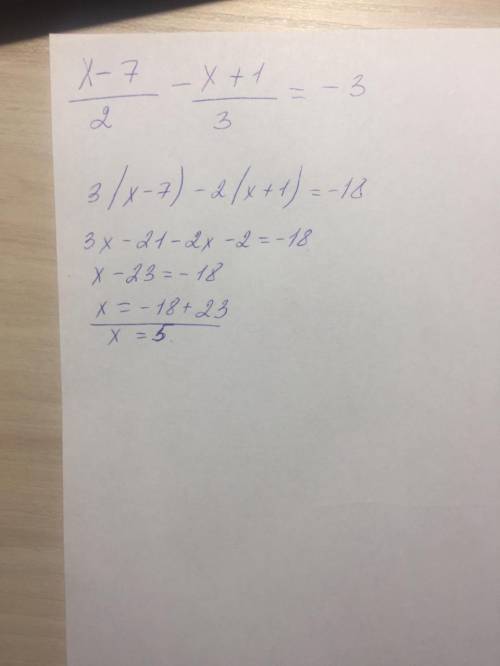 (x-7)/2 - (x+1)/3 = -3
3(x-7)-2(x+1)=-18
3x-21-2x-2=-18
x-23=-18
x=-18+23
x=5.